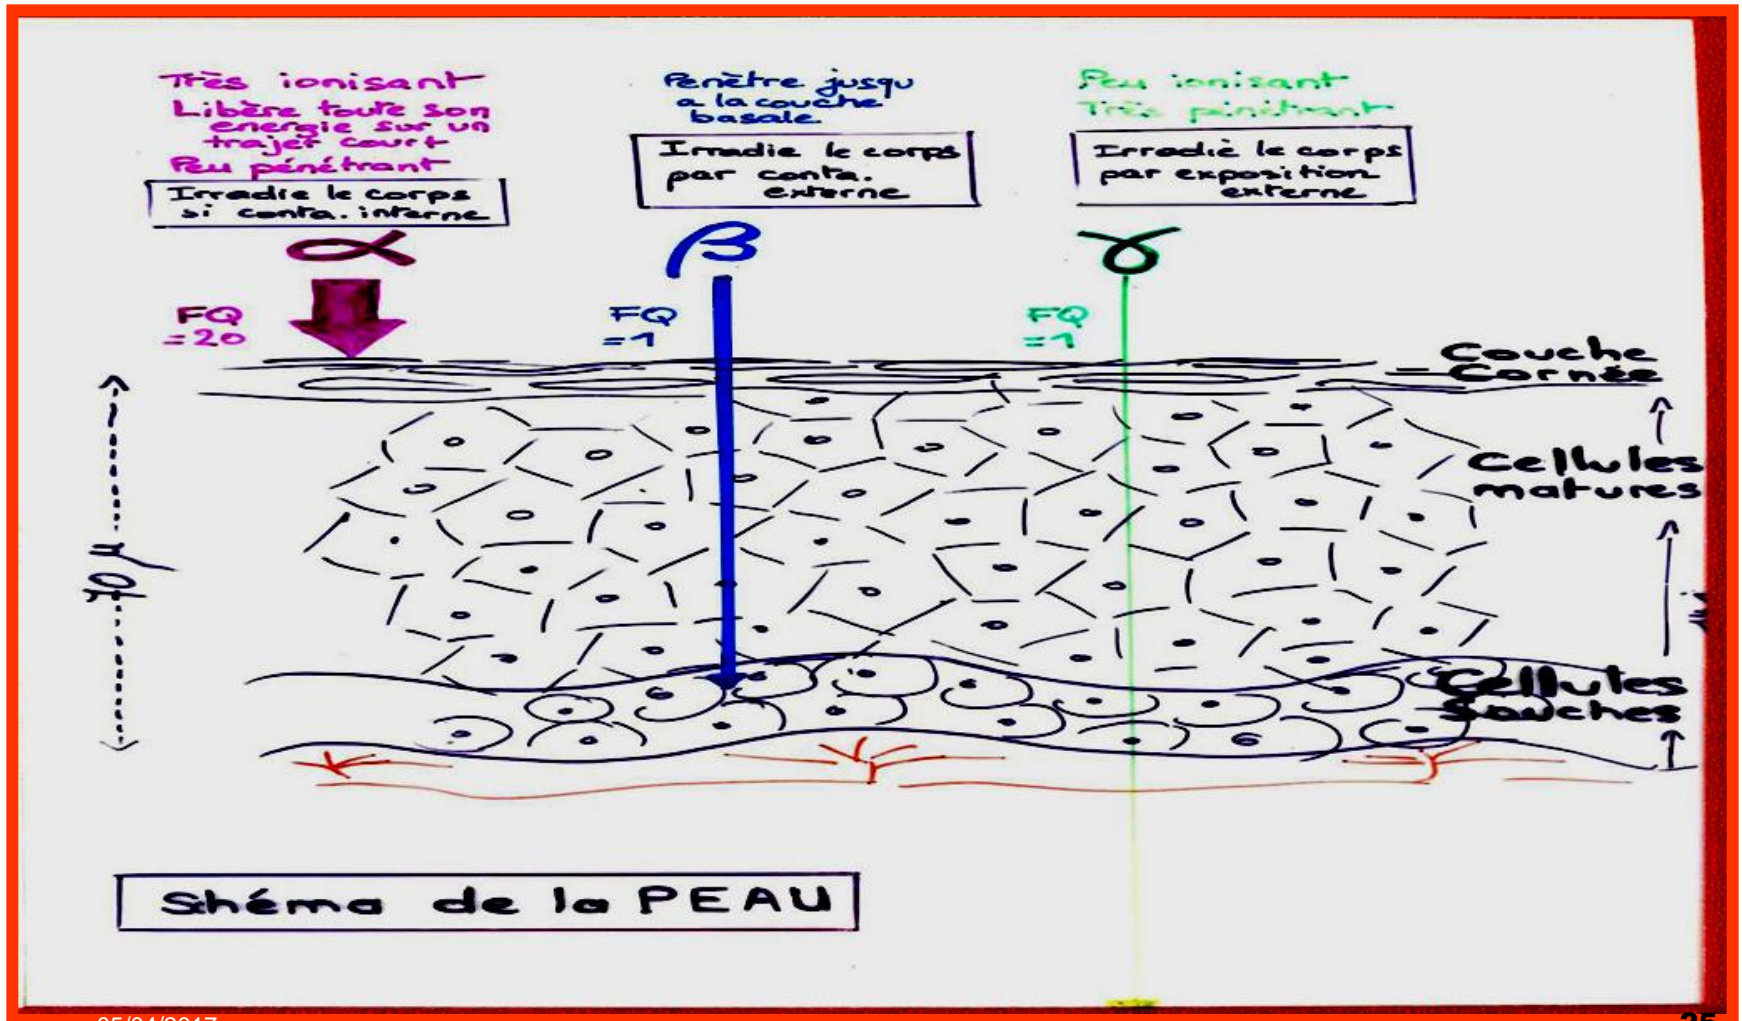 Très ionisant
Libère toute son
energie sur un
trajet court
Peu pénétrant
Irradie le corps
si conta. interne
α
FQ
=20
Penètre jusqu
a la couche
basale
Irradie le corps
par conta.
externe
β
FQ
=1
Peu ionisant
Très pénétrant
Irradie le corps
par exposition
externe
γ
FQ
=1
Couche
Cornée
Cellules
matures
70 µ
Cellules
Souches
Shéma de la PEAU
05/04/2017
35